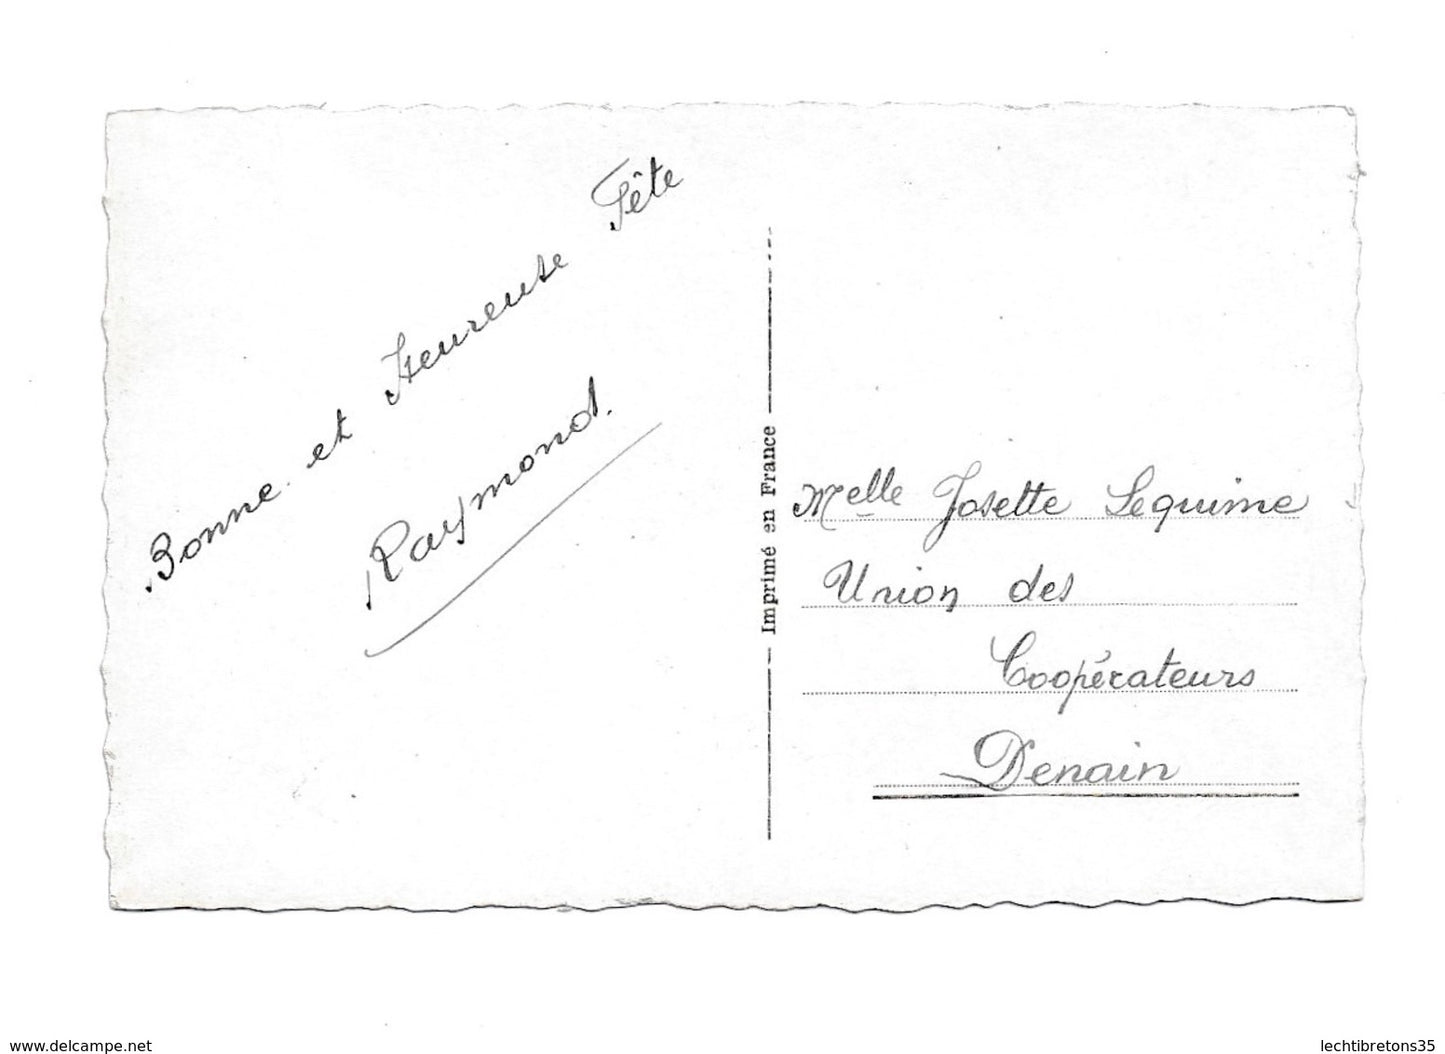 Bonne et Heureuse Fête
Raymond.
Imprimé en France
Melle Josette Lequime
Union des
Coopérateurs
Denain
www.delcampe.net
lechtibretons35